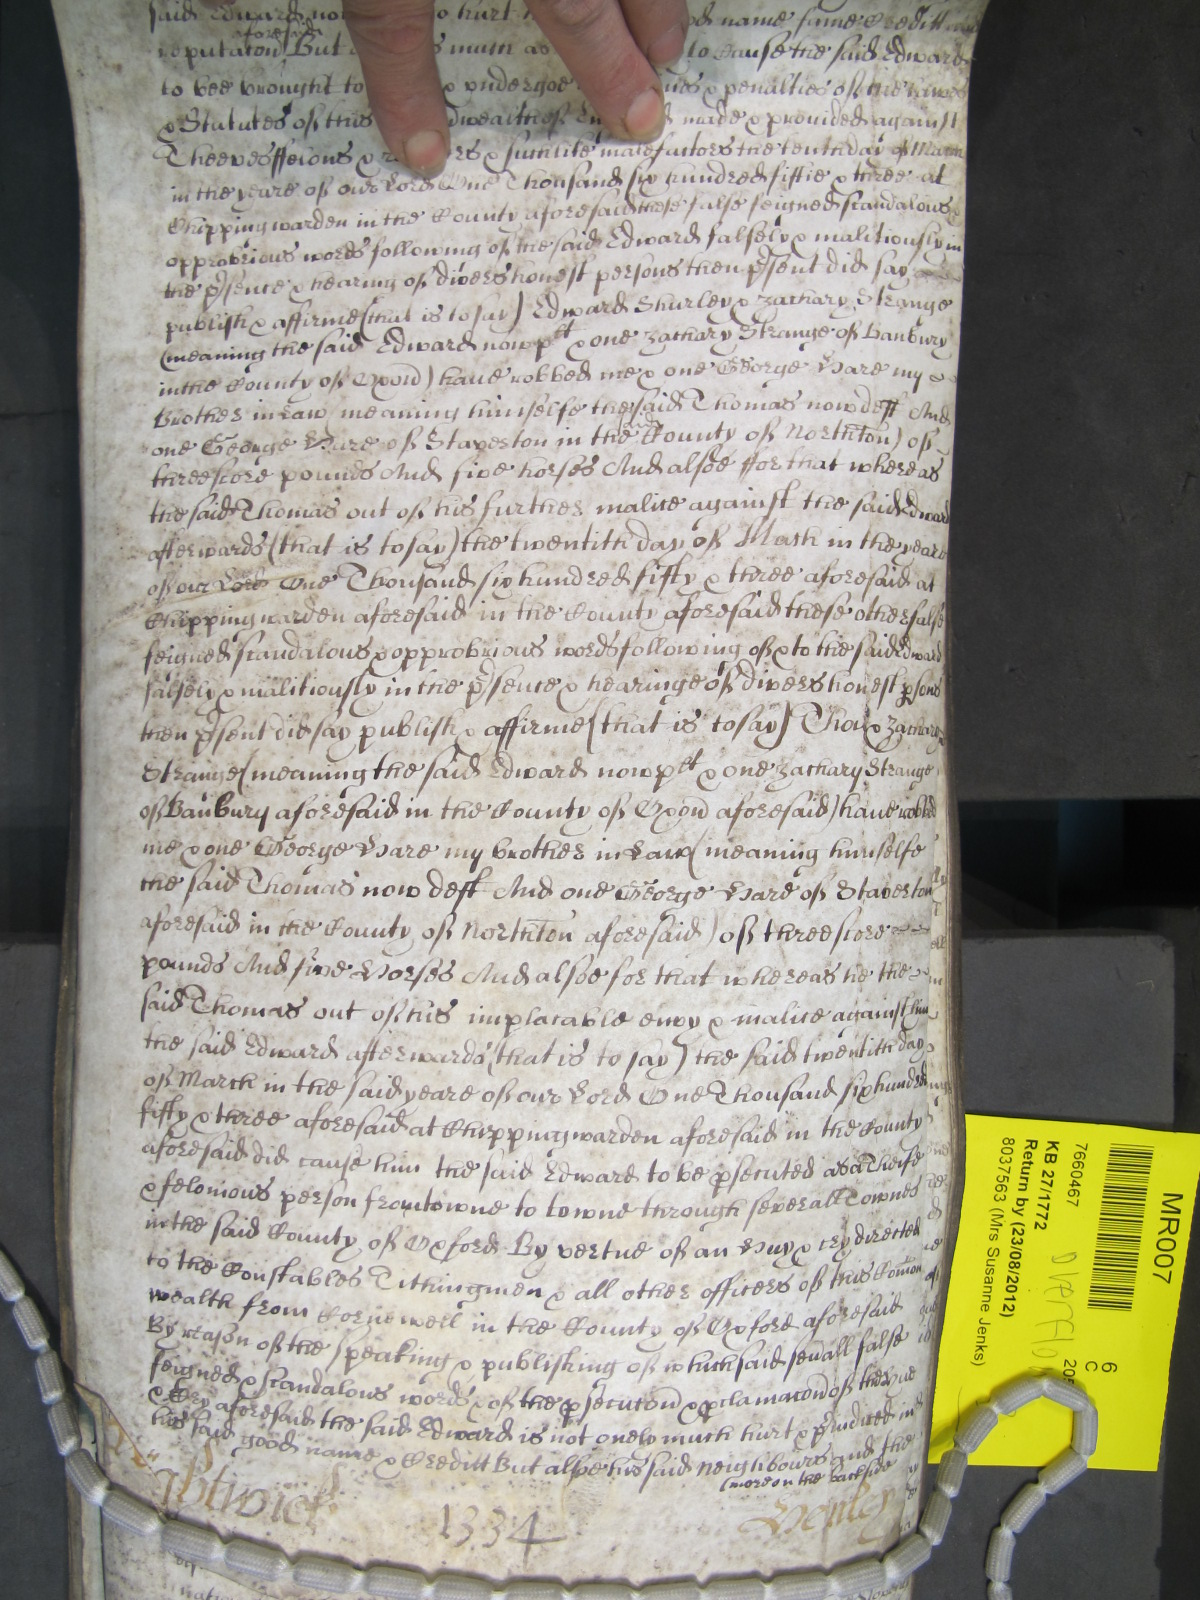 said Edward now to hurt name fame Creditt and
aforesaid
reputacon But as much as to cause the said Edward
to bee brought to & undergoe & penalties of the lawes
& Statutes of this made & provided against
Theeves ffelons & & suchlike malefactors the tenth day of March
in the yeare of our Lord One Thousand six hundred fiftie & three at
Chippingwarden in the County aforesaid these false feigned scandalous &
opprobrious words following of the said Edward falsely & malitiously in
the p'sence & hearing of divers honest persons then p'sent did say
publish & affirme (that is to say) Edward Shurley & Zachary Strange
(meaning the said Edward now plt & one Zachary Strange of Banbury
in the County of Oxon) have robbed me & one George Hare my
Brother in Law meaning himselfe the said Thomas now deft And
one George Hare of Staverton in the said County of Northton) of
threescore pounds And five horses And alsoe ffor that whereas
the said Thomas out of his further malice against the said Edward
afterwards (that is to say) the twentith day of March in the yeare
of our Lord One Thousand six hundred fifty & three aforesaid at
Chippingwarden aforesaid in the County aforesaid these other false
feigned scandalous & opprobrious words following of & to the said Edward
falsely & malitiously in the p'sence & hearinge of divers honest psons
then p'sent did say publish & affirme (that is to say) Thou & Zachary
Strange (meaning the said Edward now plt & one Zachary Strange
of Banbury aforesaid in the County of Oxon aforesaid) have robbed
me & one George Hare my brother in Law (meaning himselfe
the said Thomas now deft And one George Hare of Staverton
aforesaid in the County of Northton aforesaid) of threescore
pounds And five Horses And alsoe for that whereas he the
said Thomas out of his implacable envy & malice against him
the said Edward afterwards (that is to say) the said twentith day
of March in the said yeare of our Lord One Thousand six hundred
fifty & three aforesaid at Chippingwarden aforesaid in the County
aforesaid did cause him the said Edward to be psecuted as a Theife
& felonious person from towne to towne through severall Townes
in the said County of Oxford By vertue of an Huy & cry directed
to the Constables Tithingmen & all other officers of this Comon
wealth from Cornewell in the County of Oxford aforesaid
By reason of the speaking & publishing of which said sevall false
feigned & scandalous words & of the psecucon & pclamacon of the Hue
& Cry aforesaid the said Edward is not onely much hurt & p'judiced in
his said good name & Creditt But alsoe his said neighbours and the
(more on the backside
1334
Henley
MR007
7660467
KB 27/1772
Return by (23/08/2012)
8037563 (Mrs Susanne Jenks)
6
C